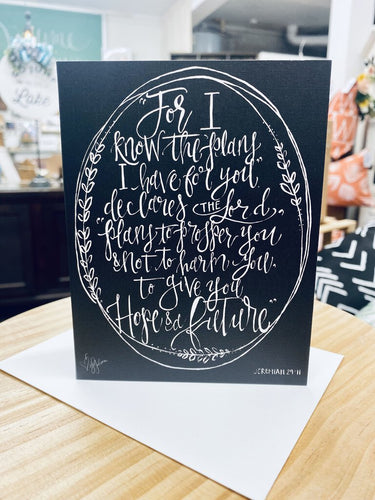 "For I
know the plans
I have for you,"
declares THE Lord,
"plans to prosper you
& not to harm you,
to give you
Hope & a future"
JEREMIAH 29:11
Lake